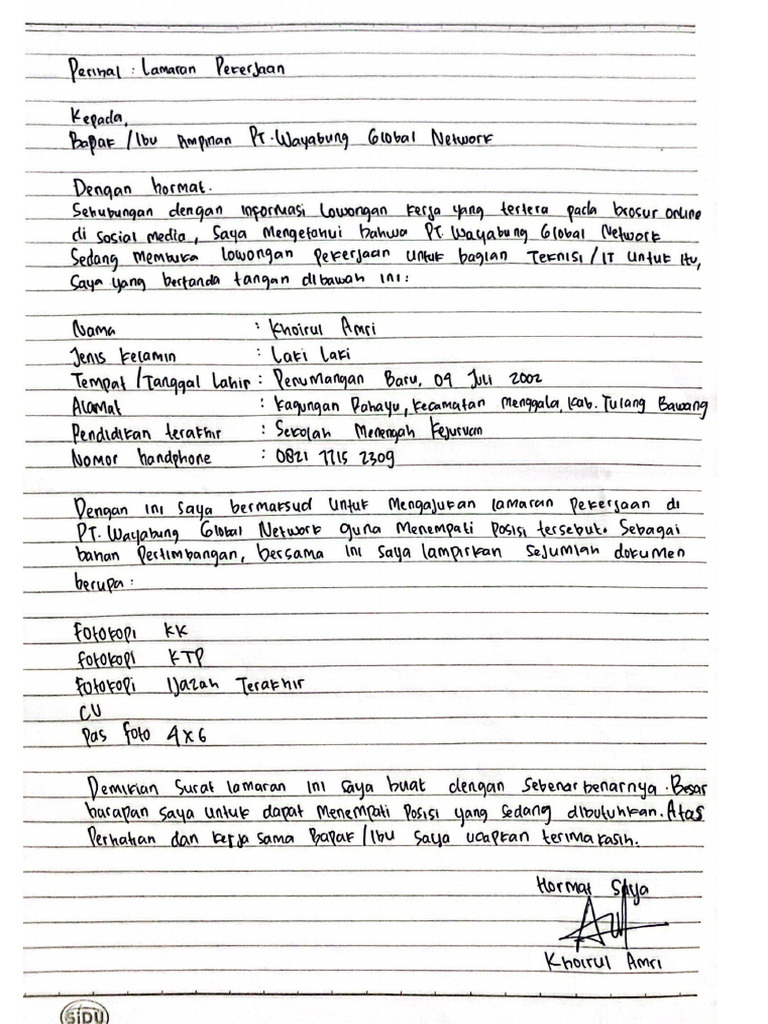 Perihal : Lamaran Pekerjaan
Kepada,
Bapak /Ibu Ampinan PT. Wayabung Global Network
Dengan hormat.
Sehubungan dengan informasi lowongan kerja yang tertera pada brosur online
di sosial media, Saya Mengetahui bahwa PT. Wayabung Global Network
Sedang Membuka lowongan Pekerjaan untuk bagian Teknisi / IT untuk itu,
Saya yang bertanda tangan dibawah ini :
Nama : Khoirul Amri
Jenis Kelamin : Laki Laki
Tempat /Tanggal Lahir : Penumangan Baru, 09 Juli 2002
Alamat : Kagungan Rahayu, Kecamatan Menggala, Kab. Tulang Bawang
Pendidikan terakhir : Sekolah Menengah Kejuruan
Nomor handphone : 0821 7715 2309
Dengan ini saya bermaksud untuk Mengajukan lamaran Pekerjaan di
PT. Wayabung Global Network guna Menempati Posisi tersebut. Sebagai
bahan Pertimbangan, bersama ini saya lampirkan Sejumlah dokumen
berupa :
Fotokopi KK
Fotokopi KTP
Fotokopi Ijazah Terakhir
CV
Pas Foto 4x6
Demikian Surat lamaran ini saya buat dengan Sebenar benarnya. Besar
harapan saya untuk dapat Menempati Posisi yang sedang dibutuhkan. Atas
Perhatian dan kerja sama Bapak / Ibu saya ucapkan terima kasih.
Hormat Saya
Khoirul Amri
SiDU